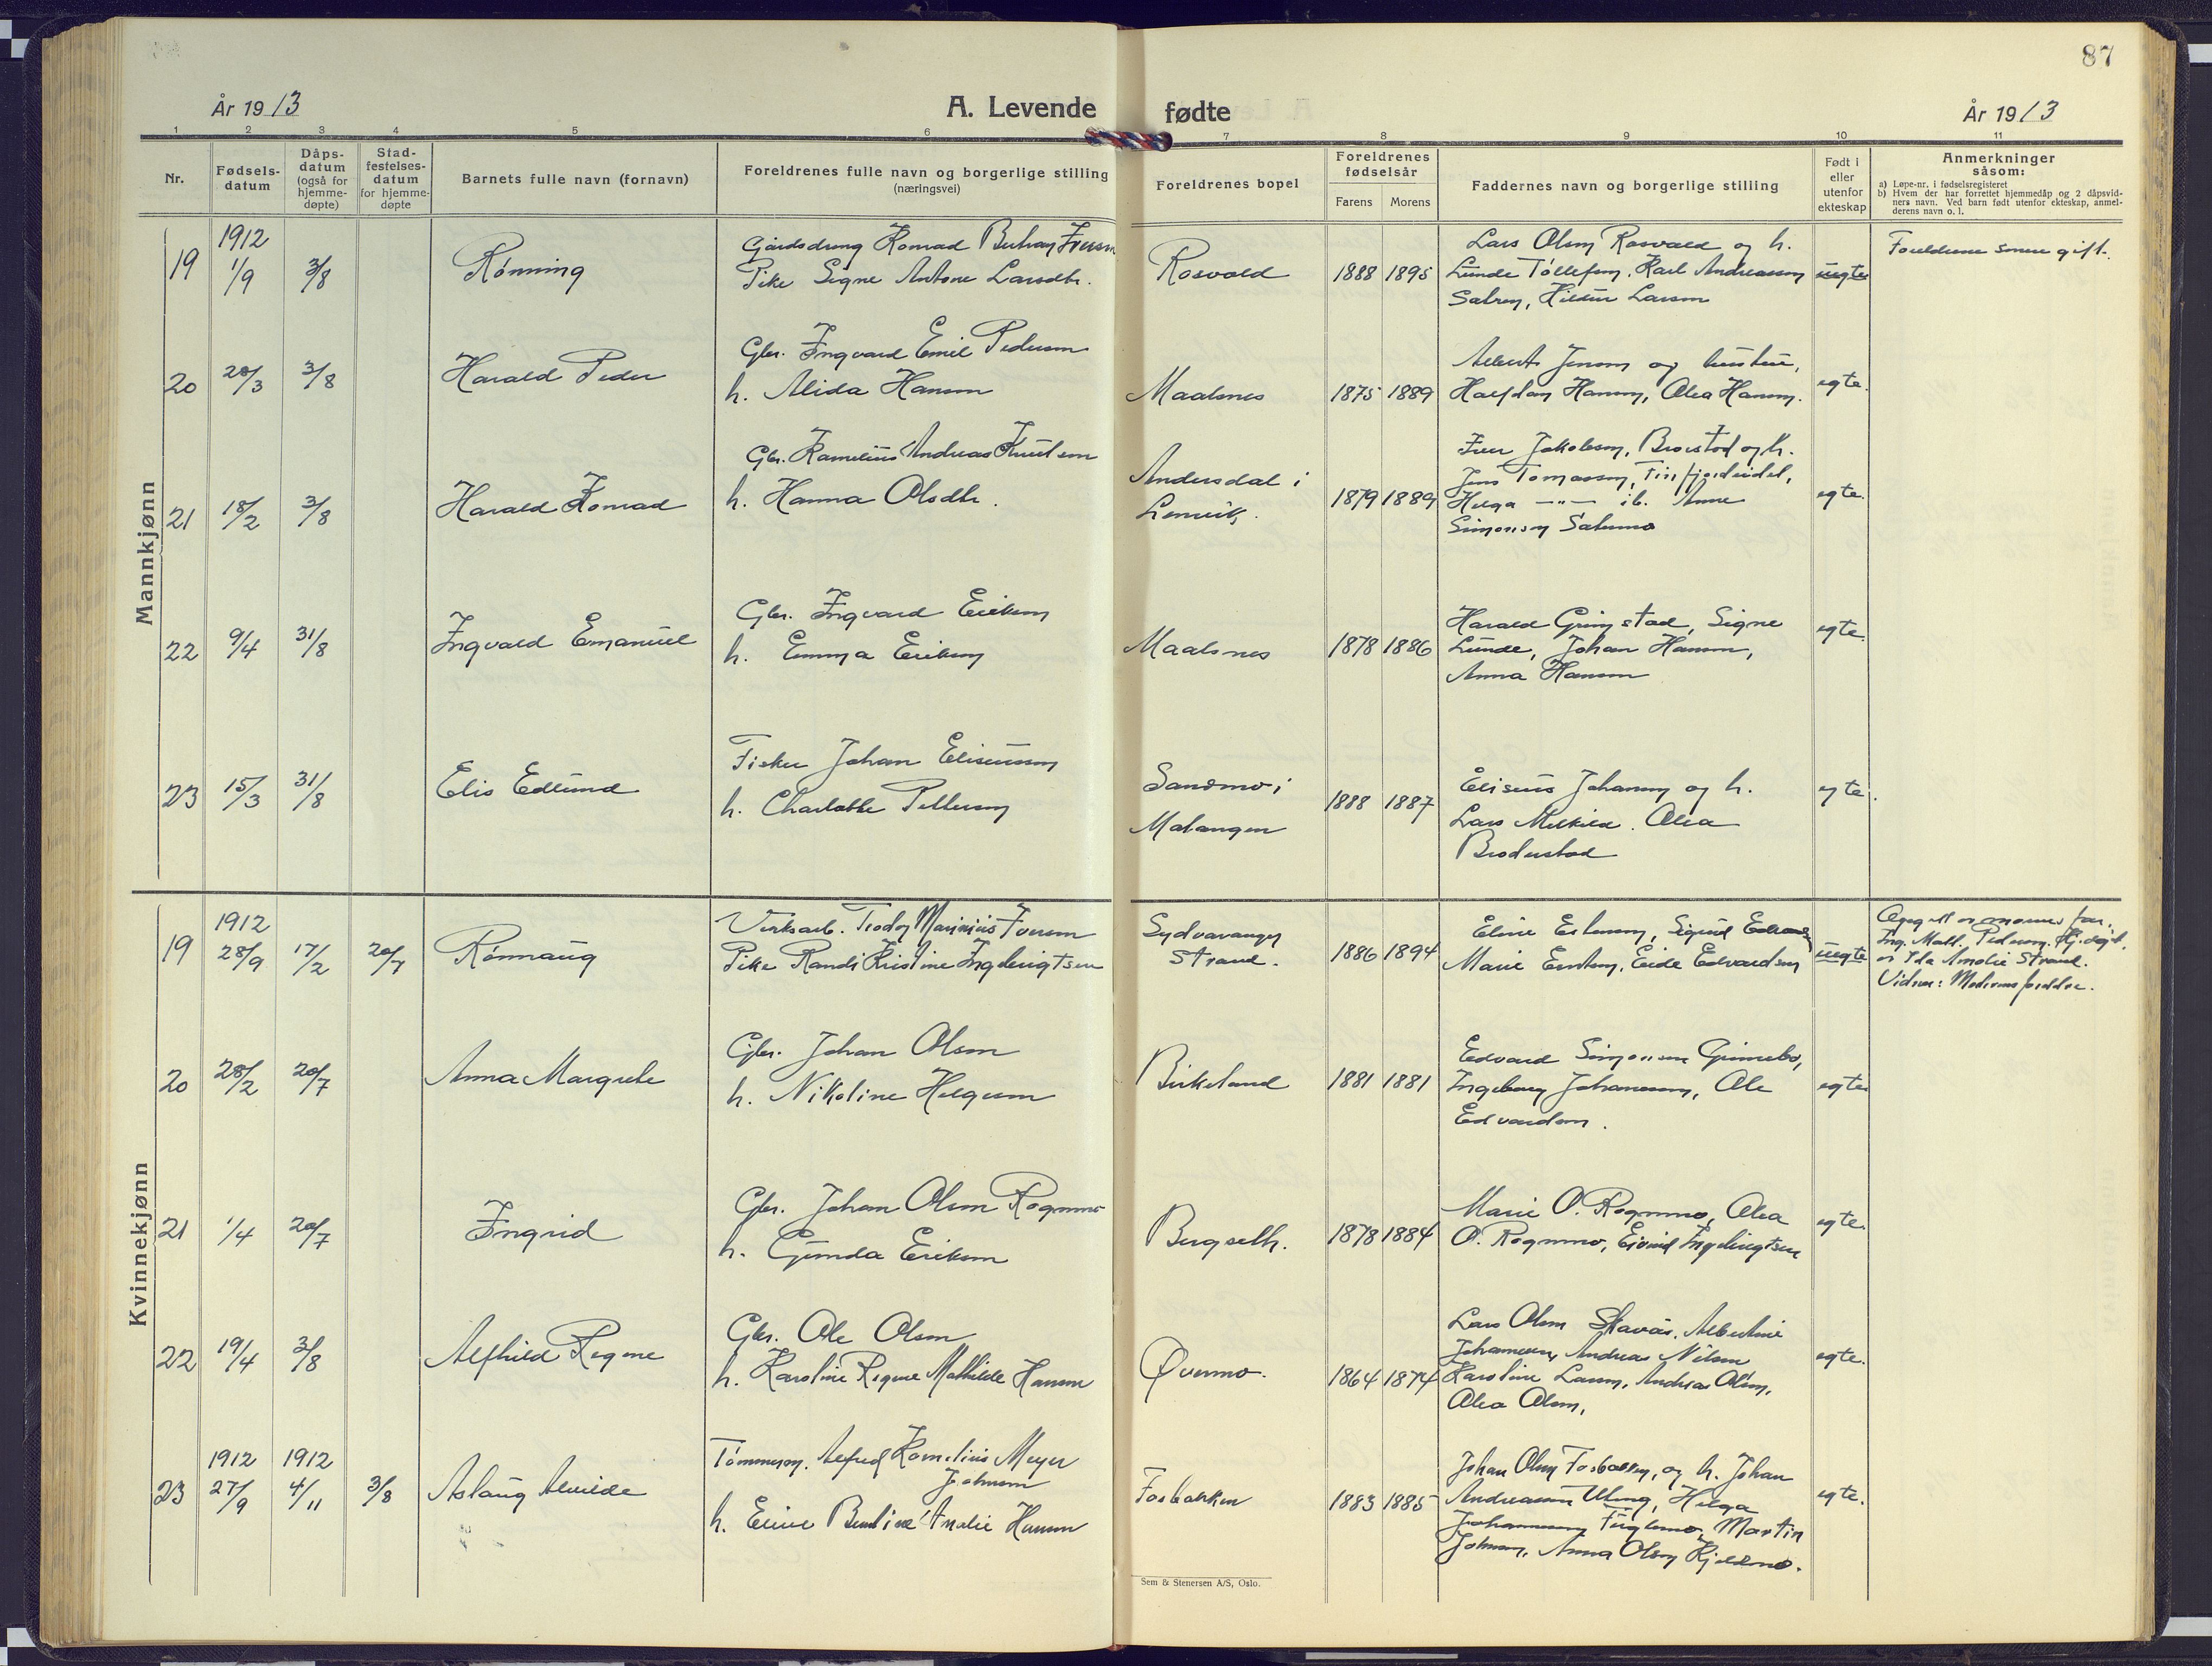 87
År 1913
A. Levende fødte
År 1913
1 2 3 4 5 6 7 8 9 10 11
Nr.
Fødsels-
datum
Dåps-
datum
(også for
hjemme-
døpte)
Stad-
festelses-
datum
for hjemme-
døpte
Barnets fulle navn (fornavn)
Foreldrenes fulle navn og borgerlige stilling
(næringsvei)
Foreldrenes bopel
Foreldrenes
fødselsår
Farens
Morens
Faddernes navn og borgerlige stilling
Født i
eller
utenfor
ekteskap
Anmerkninger
såsom:
a) Løpe-nr. i fødselsregisteret
b) Hvem der har forrettet hjemmedåp og 2 dåpsvid-
ners navn. Ved barn født utenfor ekteskap, anmel-
derens navn o. l.
Mannkjønn
19
1912
1/9
3/8
Rønning
Gårdsdreng Konrad Iversen
Pike Signe Antone Larsdtr.
Rosvold
1888 1895
Lars Olsen Rosvold og h.
Lunde Tollefsen, Karl Andreassen
Larsen
uegte
Foreldrene senere gift.
20
20/3
3/8
Harald Peder
Gbr. Ingvard Emil Pedersen
h. Alida Hansen
Maalsnes
1875 1889
Albert Jensen og hustru,
Halfdan Hansen, Olea Hansen.
egte.
21
18/2
3/8
Harald Konrad
Gbr. Kornelius Andreas Knutsen
h. Hanna Olsdtr.
Andersdal i
Lenvik.
1879 1889
Iver Jakobsen, og h.
Jens Tomassen,
Helga —"— ib. Anne
Simonsen
egte.
22
9/4
31/8
Ingvald Emanuel
Gbr. Ingvard Eriksen
h. Emma Eriksen
Maalsnes
1878 1886
Harald Grimstad, Signe
Lunde, Johan Hansen,
Anna Hansen
egte.
23
15/3
31/8
Elis Edlund
Fisker Johan Eliseussen
h. Charlotte Pettersen
Sandmo i
Malangen
1888 1887
Eliseus Johansen og h.
Lars Olea
Broderstad
egte.
Kvinnekjønn
19
1912
28/9
17/2
20/7
Rønnaug
Teodor Marinius Iversen
Pike Randi Kristine Ingebrigtsen
Sydvaranger
Strand.
1886 1894
Marie Edvardsen
uegte
Ida Amalie Strand.
20
28/2
20/7
Anna Margrete
Gbr. Johan Olsen
h. Nikoline Helgesen
Birkeland
1881 1881
Edvard Simonsen
Ingeborg Johannessen, Ole
Edvardsen.
egte
21
1/4
20/7
Ingrid
Gbr. Johan Olsen Rognmo
h. Gunda Eriksen
Bergselh.
1878 1884
Marie O. Rognmo, Olea
O. Rognmo, Eivind Ingebrigtsen
egte.
22
19/4
3/8
Alfhild Regine
Gbr. Ole Olsen
h. Karoline Regine Mathilde Hansen
Øvermo.
1864 1874
Lars Olsen Albertine
Johannessen, Andreas Nilsen
Karoline Larsen, Andreas Olsen,
Olea Olsen,
egte.
23
1912
27/9
1912
4/11
3/8
Aslaug Alvilde
Tømmerm. Alfred Kornelius Meyer
Johnsen
h. Hansen
Fosbakken
1883 1885
Johan Olsen Fosbakken, og h. Johan
Andreassen Helga
Johannessen Fuglemo, Martin
Johnsen, Anna Olsen Kjeldmo.
egte.
Sem & Stenersen A/S, Oslo.